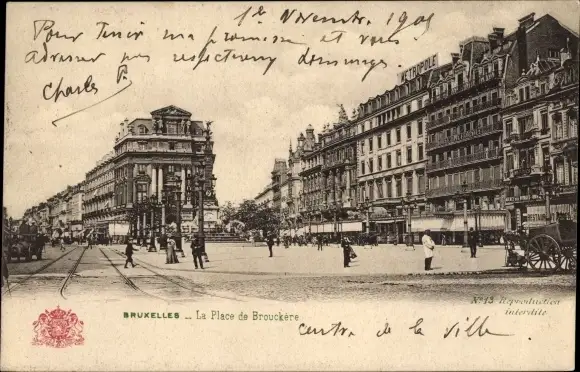 1er Novembre, 1901
Pour tenir ma promesse et vous
adresser mes respectueux hommages.
Charles P.
METROPOLE
Nº 13 Reproduction
interdite
BRUXELLES _ La Place de Brouckère
Centre de la ville